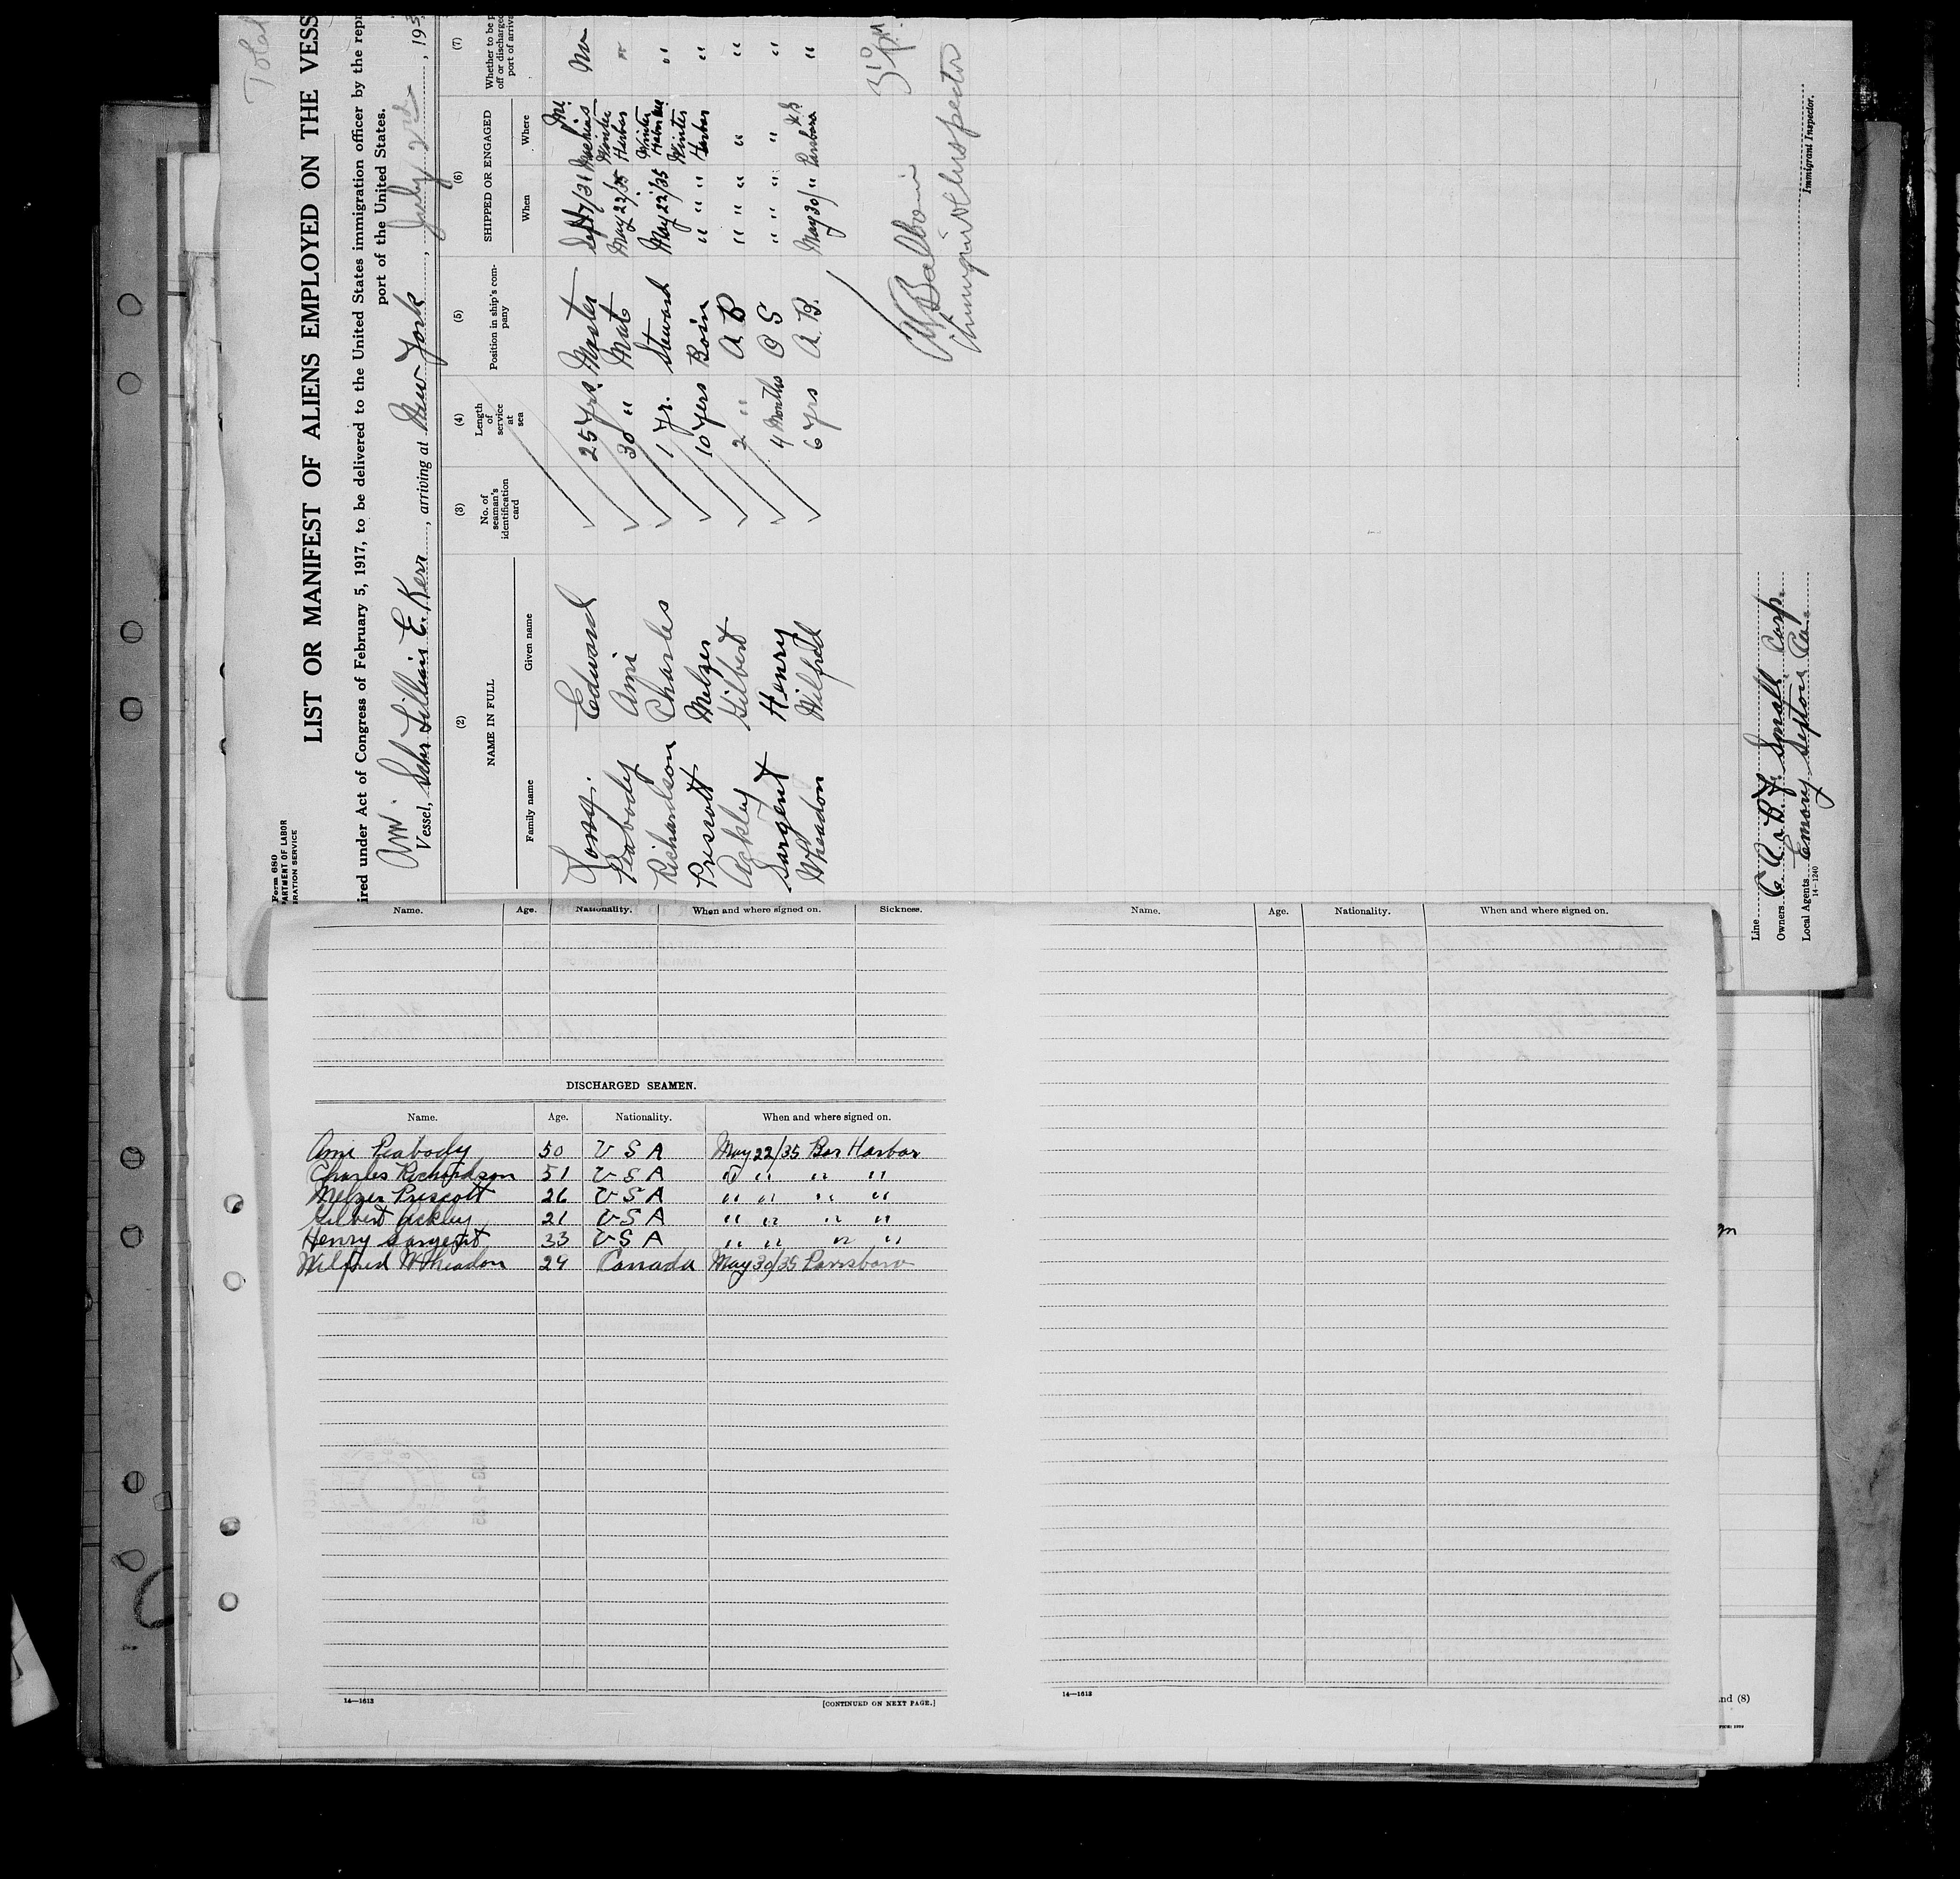 Total
Form 680
LIST OR MANIFEST OF ALIENS EMPLOYED ON THE VESS
ired under Act of Congress of February 5, 1917, to be delivered to the United States immigration officer by the repr
port of the United States.
Am. Vessel, Schr Lillian E. Kerr, arriving at New York, July 2nd, 193
(2) (3) (4) (5) (6) (7)
NAME IN FULL
Family name Given name
No. of seaman's identification card
Length of service at sea
Position in ship's company
SHIPPED OR ENGAGED
When Where
Whether to be p
off or discharged
port of arriva
Edward 25 yrs. Master Sept 7/31 Machias Me
Peabody Ami 30 " Mate May 22/35 Winter Harbor
Richardson Charles 1 yr. Steward May 22/35 Winter "
Prescott Melzer 10 yers Bosin " " " Harbor "
Ackley Gilbert 2 " A B " " " " "
Sargent Henry 4 Months O S " " " " "
Wheadon Wilfred 6 yrs A. B. May 30/ " "
310 P.M.
Immigrant Inspector
Line
Owners C. A. & B. F. Small Corp.
Local Agents Emory Sexton Co.
14-1240
Immigrant Inspector.
Name. Age. Nationality. When and where signed on. Sickness.
DISCHARGED SEAMEN.
Name. Age. Nationality. When and where signed on.
Ami Peabody 50 U S A May 22/35 Bar Harbor
Charles Richardson 51 U S A " " " "
Melzer Prescott 26 U S A " " " "
Gilbert Ackley 21 U S A " " " "
Henry Sargent 33 U S A " " " "
Wilfred Wheadon 29 Canada May 30/35 Parrsboro
14—1613
[CONTINUED ON NEXT PAGE.]
Name. Age. Nationality. When and where signed on.
14—1613
nd (8)